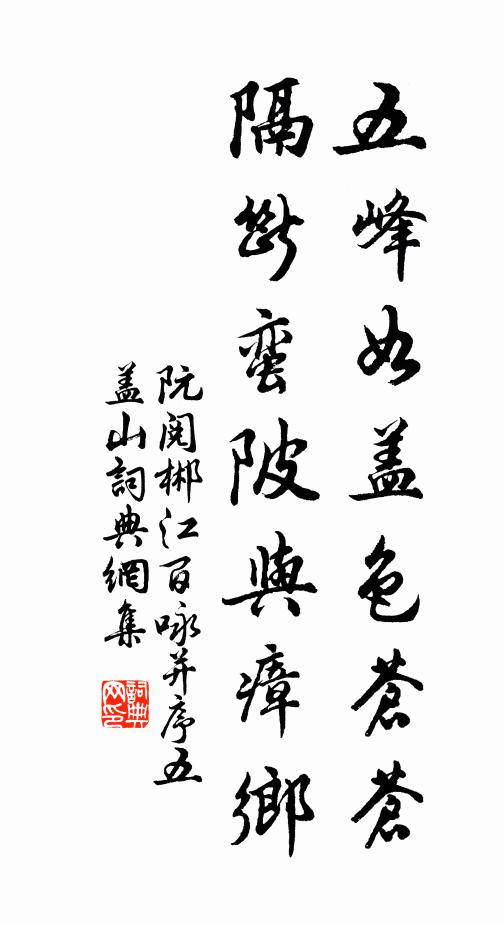 五峰如盖色蒼蒼
隔斷蛮陂與瘴鄉
阮阅郴江百咏并序五
盖山詞典網集
詞典网印